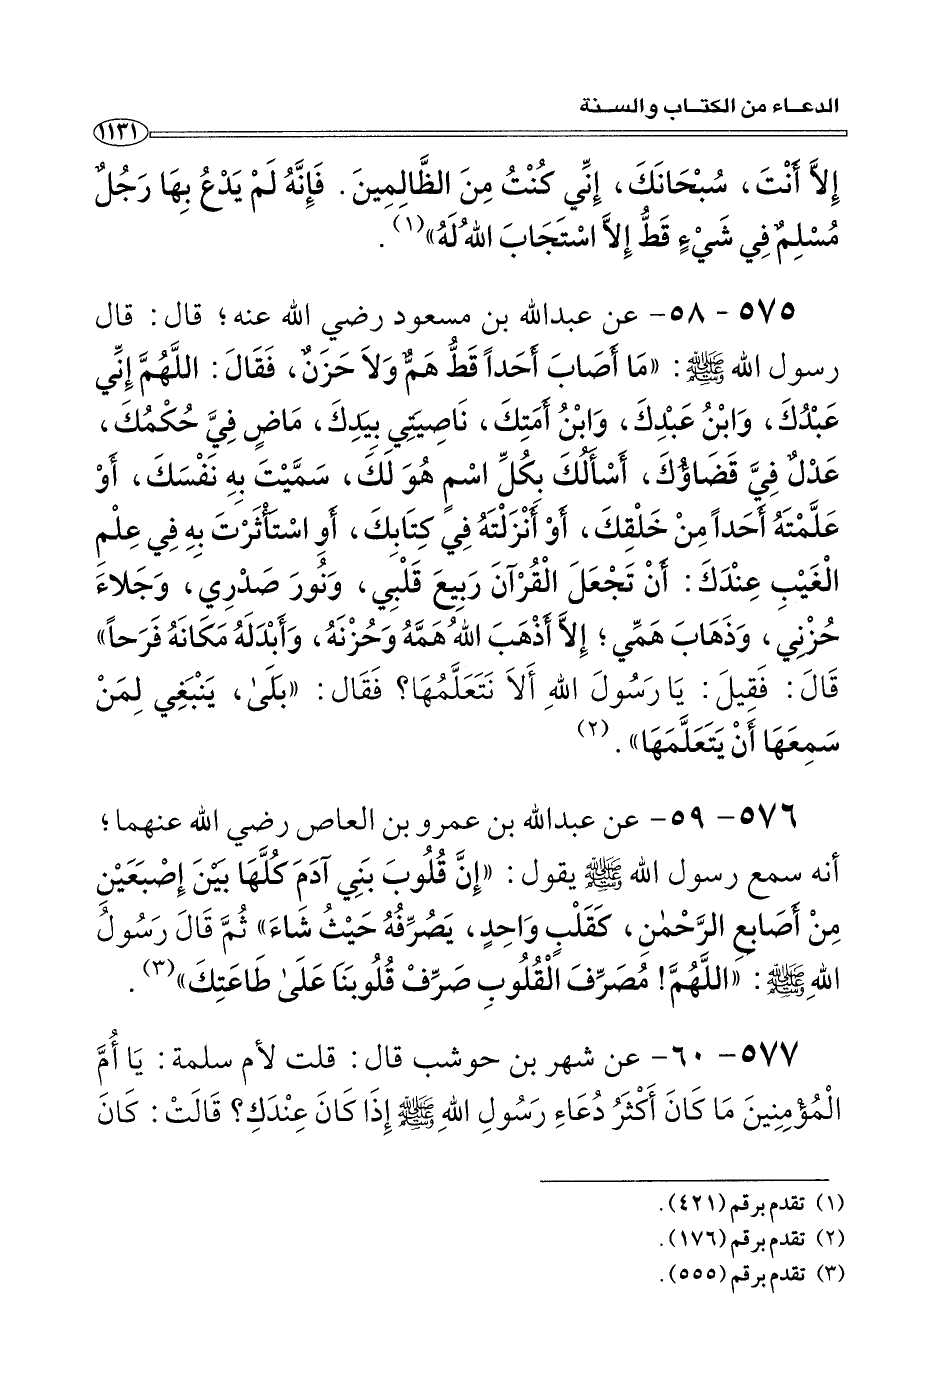 الدعـاء من الكتـاب والسـنة
١١٣١
إِلاَّ أَنْتَ، سُبْحَانَكَ، إِنِّي كُنْتُ مِنَ الظَّالِمِينَ. فَإِنَّهُ لَمْ يَدْعُ بِهَا رَجُلٌ
مُسْلِمٌ فِي شَيْءٍ قَطُّ إِلاَّ اسْتَجَابَ اللهُ لَهُ»(١).
٥٧٥ - ٥٨- عن عبدالله بن مسعود رضي الله عنه؛ قال: قال
رسول الله ﷺ: «مَا أَصَابَ أَحَداً قَطُّ هَمٌّ وَلاَ حَزَنٌ، فَقَالَ: اللَّهُمَّ إِنِّي
عَبْدُكَ، وَابْنُ عَبْدِكَ، وَابْنُ أَمَتِكَ، نَاصِيَتِي بِيَدِكَ، مَاضٍ فِيَّ حُكْمُكَ،
عَدْلٌ فِيَّ قَضَاؤُكَ، أَسْأَلُكَ بِكُلِّ اسْمٍ هُوَ لَكَ، سَمَّيْتَ بِهِ نَفْسَكَ، أَوْ
عَلَّمْتَهُ أَحَداً مِنْ خَلْقِكَ، أَوْ أَنْزَلْتَهُ فِي كِتَابِكَ، أَوِ اسْتَأْثَرْتَ بِهِ فِي عِلْمِ
الْغَيْبِ عِنْدَكَ: أَنْ تَجْعَلَ الْقُرْآنَ رَبِيعَ قَلْبِي، وَنُورَ صَدْرِي، وَجَلاءَ
حُزْنِي، وَذَهَابَ هَمِّي؛ إِلاَّ أَذْهَبَ اللهُ هَمَّهُ وَحُزْنَهُ، وَأَبْدَلَهُ مَكَانَهُ فَرَحاً»
قَالَ: فَقِيلَ: يَا رَسُولَ اللهِ أَلاَ نَتَعَلَّمُهَا؟ فَقَال: «بَلَىٰ، يَنْبَغِي لِمَنْ
سَمِعَهَا أَنْ يَتَعَلَّمَهَا».(٢)
٥٧٦- ٥٩- عن عبدالله بن عمرو بن العاص رضي الله عنهما؛
أنه سمع رسول الله ﷺ يقول: «إِنَّ قُلُوبَ بَنِي آدَمَ كُلَّهَا بَيْنَ إِصْبَعَيْنِ
مِنْ أَصَابِعِ الرَّحْمٰنِ، كَقَلْبٍ وَاحِدٍ، يَصُرِّفُهُ حَيْثُ شَاءَ» ثُمَّ قَالَ رَسُولُ
اللهِ ﷺ: «اللَّهُمَّ! مُصَرِّفَ الْقُلُوبِ صَرِّفْ قُلُوبَنَا عَلَىٰ طَاعَتِكَ»(٣).
٥٧٧- ٦٠- عن شهر بن حوشب قال: قلت لأم سلمة: يَا أُمَّ
الْمُؤْمِنِينَ مَا كَانَ أَكْثَرُ دُعَاءِ رَسُولِ اللهِ ﷺ إِذَا كَانَ عِنْدَكِ؟ قَالَتْ: كَانَ
(١) تقدم برقم (٤٢١).
(٢) تقدم برقم (١٧٦).
(٣) تقدم برقم (٥٥٥).